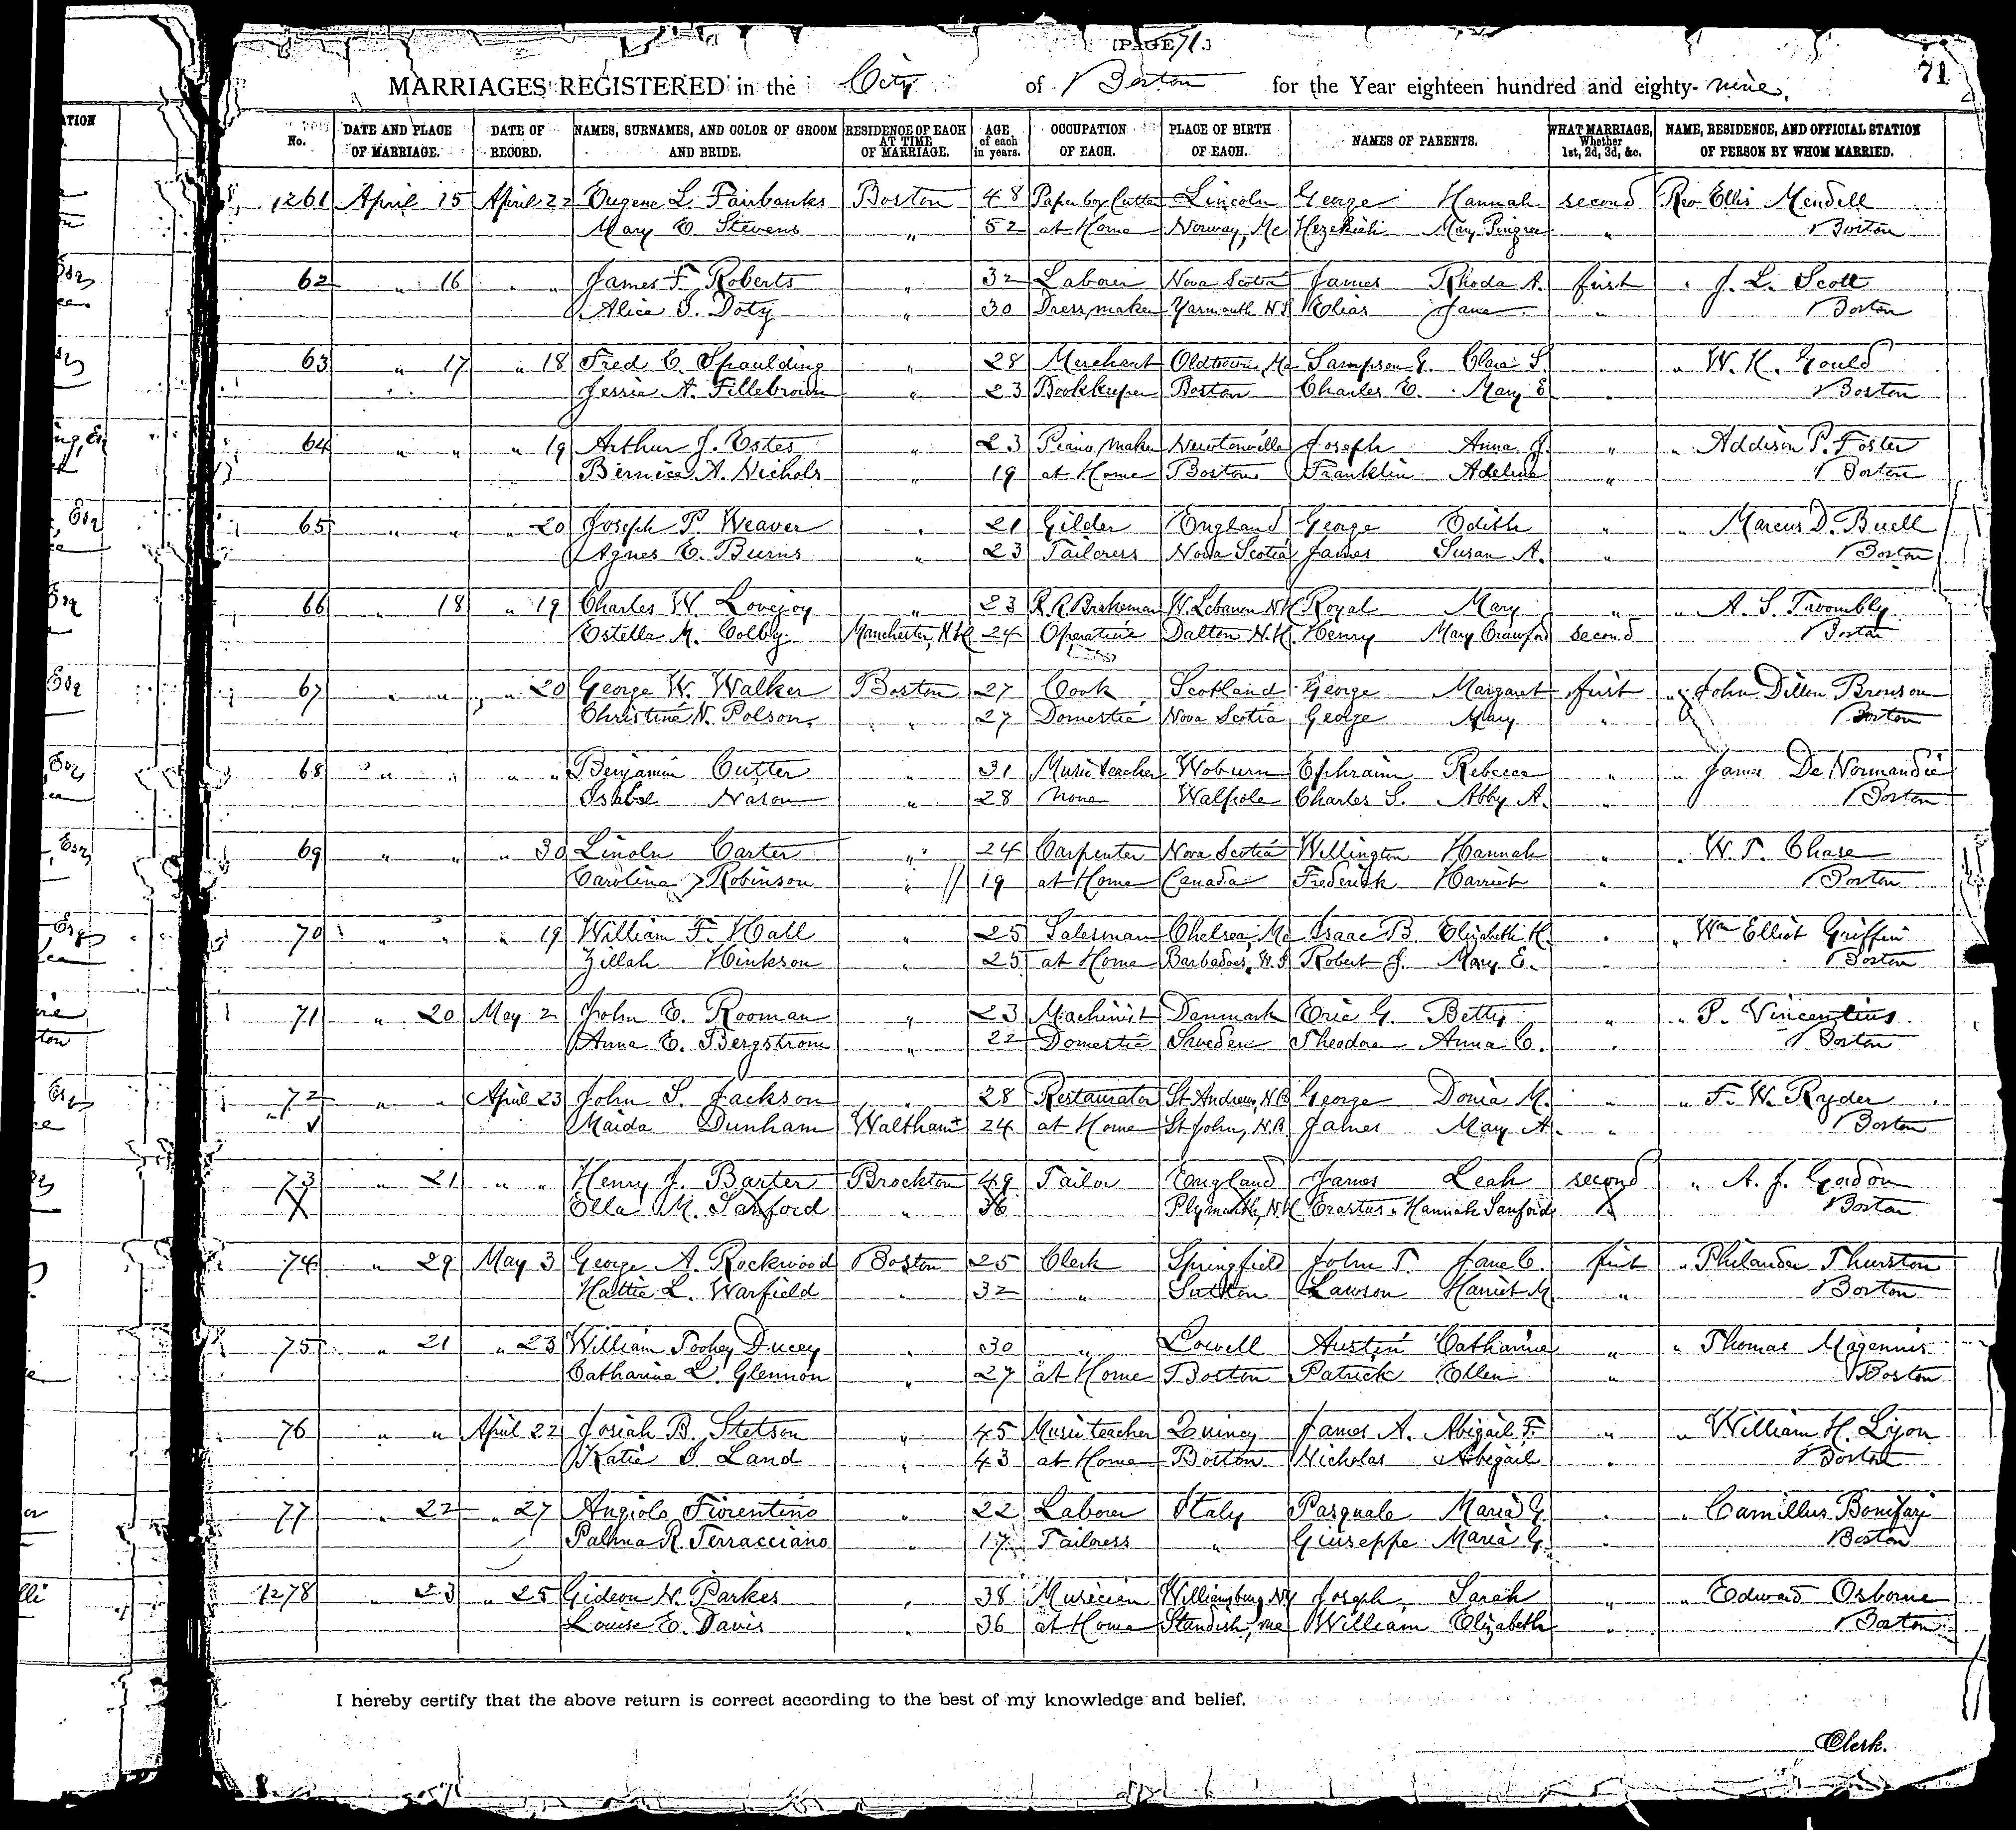 [PAGE 71.]
71
MARRIAGES REGISTERED in the City of Boston for the Year eighteen hundred and eighty-nine.
No. DATE AND PLACE OF MARRIAGE. DATE OF RECORD. NAMES, SURNAMES, AND COLOR OF GROOM AND BRIDE. RESIDENCE OF EACH AT TIME OF MARRIAGE. AGE of each in years. OCCUPATION OF EACH. PLACE OF BIRTH OF EACH. NAMES OF PARENTS. WHAT MARRIAGE, Whether 1st, 2d, 3d, &c. NAME, RESIDENCE, AND OFFICIAL STATION OF PERSON BY WHOM MARRIED.
1261 April 15 April 22 Eugene L. Fairbanks Boston 48 Paper box Cutter Lincoln George Hannah second Rev Ellis Mendell
Mary E. Stevens " 52 at Home Norway, Me Hezekiah Mary Pingree " Boston
62 " 16 " " James F. Roberts " 32 Laborer Nova Scotia James Rhoda A. first " J. L. Scott
Alice I. Doty " 30 Dress maker Yarmouth N.S Elias Jane " Boston
63 " 17 " 18 Fred C. Spaulding " 28 Merchant Oldtown, Me Sampson G. Clara S. " " W. K. Gould
Jessie A. Fillebrown " 23 Bookkeeper Boston Charles E. Mary E " Boston
64 " " " 19 Arthur J. Estes " 23 Piano maker Newtonville Joseph Anna J. " " Addison P. Foster
Bernice A. Nichols " 19 at Home Boston Franklin Adeline " Boston
65 " " " 20 Joseph P. Weaver " 21 Gilder England George Edith " " Marcus D. Buell
Agnes E. Burns " 23 Tailoress Nova Scotia James Susan A. " Boston
66 " 18 " 19 Charles W. Lovejoy " 23 R. R. Brakeman W. Lebanon N.H Royal Mary " " A. S. Twombly
Estella M. Colby Manchester, N.H 24 Operative Dalton N.H. Henry Mary Crawford second Boston
67 " " " 20 George W. Walker Boston 27 Cook Scotland George Margaret first " John Dillon Bronson
Christine N. Polson " 27 Domestic Nova Scotia George Mary " Boston
68 " " " " Benjamin Cutter " 31 Music teacher Woburn Ephraim Rebecca " " James De Normandie
Isabel Nason " 28 None Walpole Charles S. Abby A. " Boston
69 " " " 30 Lincoln Carter " 24 Carpenter Nova Scotia Willington Hannah " " W. T. Chase
Caroline Robinson " 19 at Home Canada Frederick Harriet " Boston
70 " " " 19 William F. Hall " 25 Salesman Chelsea, Me Isaac B. Elizabeth H. " " Wm Elliot Griffin
Zillah Hinkson " 25 at Home Barbadoes, W.I Robert J. Mary E. " Boston
71 " 20 May 2 John E. Rooman " 23 Machinist Denmark Eric G. Betty " " P. Vincentius
Anna E. Bergstrom " 22 Domestic Sweden Theodore Anna C. " Boston
72 " " April 23 John S. Jackson " 28 Restaurator St Andrew, N.B George Donia M. " " F. W. Ryder
Maida Dunham Waltham 24 at Home St John, N.B James Mary A. " Boston
73 " 21 " " Henry J. Barter Brockton 49 Tailor England James Leah second " A. J. Gordon
X Ella M. Sanford " 36 Plymouth, N.H Erastus Hannah Sanford X Boston
74 " 29 May 3 George A. Rockwood Boston 25 Clerk Springfield John T. Jane C. first " Philander Thurston
Hattie L. Warfield " 32 " Sutton Lawson Harriet M. " Boston
75 " 21 " 23 William Toohey Ducey " 30 " Lowell Austin Catharine " " Thomas Magennis
Catharine L. Glennon " 27 at Home Boston Patrick Ellen " Boston
76 " " April 22 Josiah B. Stetson " 45 Music teacher Quincy James A. Abigail F. " " William H. Lyon
Katie I. Land " 43 at Home Boston Nicholas Abigail " Boston
77 " 22 " 27 Angiolo Fiorentino " 22 Laborer Italy Pasquale Maria G. " " Camillus Bonifazi
Palma R. Terracciano " 17 Tailoress " Giuseppe Maria G. " Boston
1278 " 23 " 25 Gideon N. Parkes " 38 Musician Williamsburg N.Y Joseph Sarah " " Edward Osborne
Louise E. Davis " 36 at Home Standish, Me William Elizabeth " Boston
I hereby certify that the above return is correct according to the best of my knowledge and belief.
Clerk.